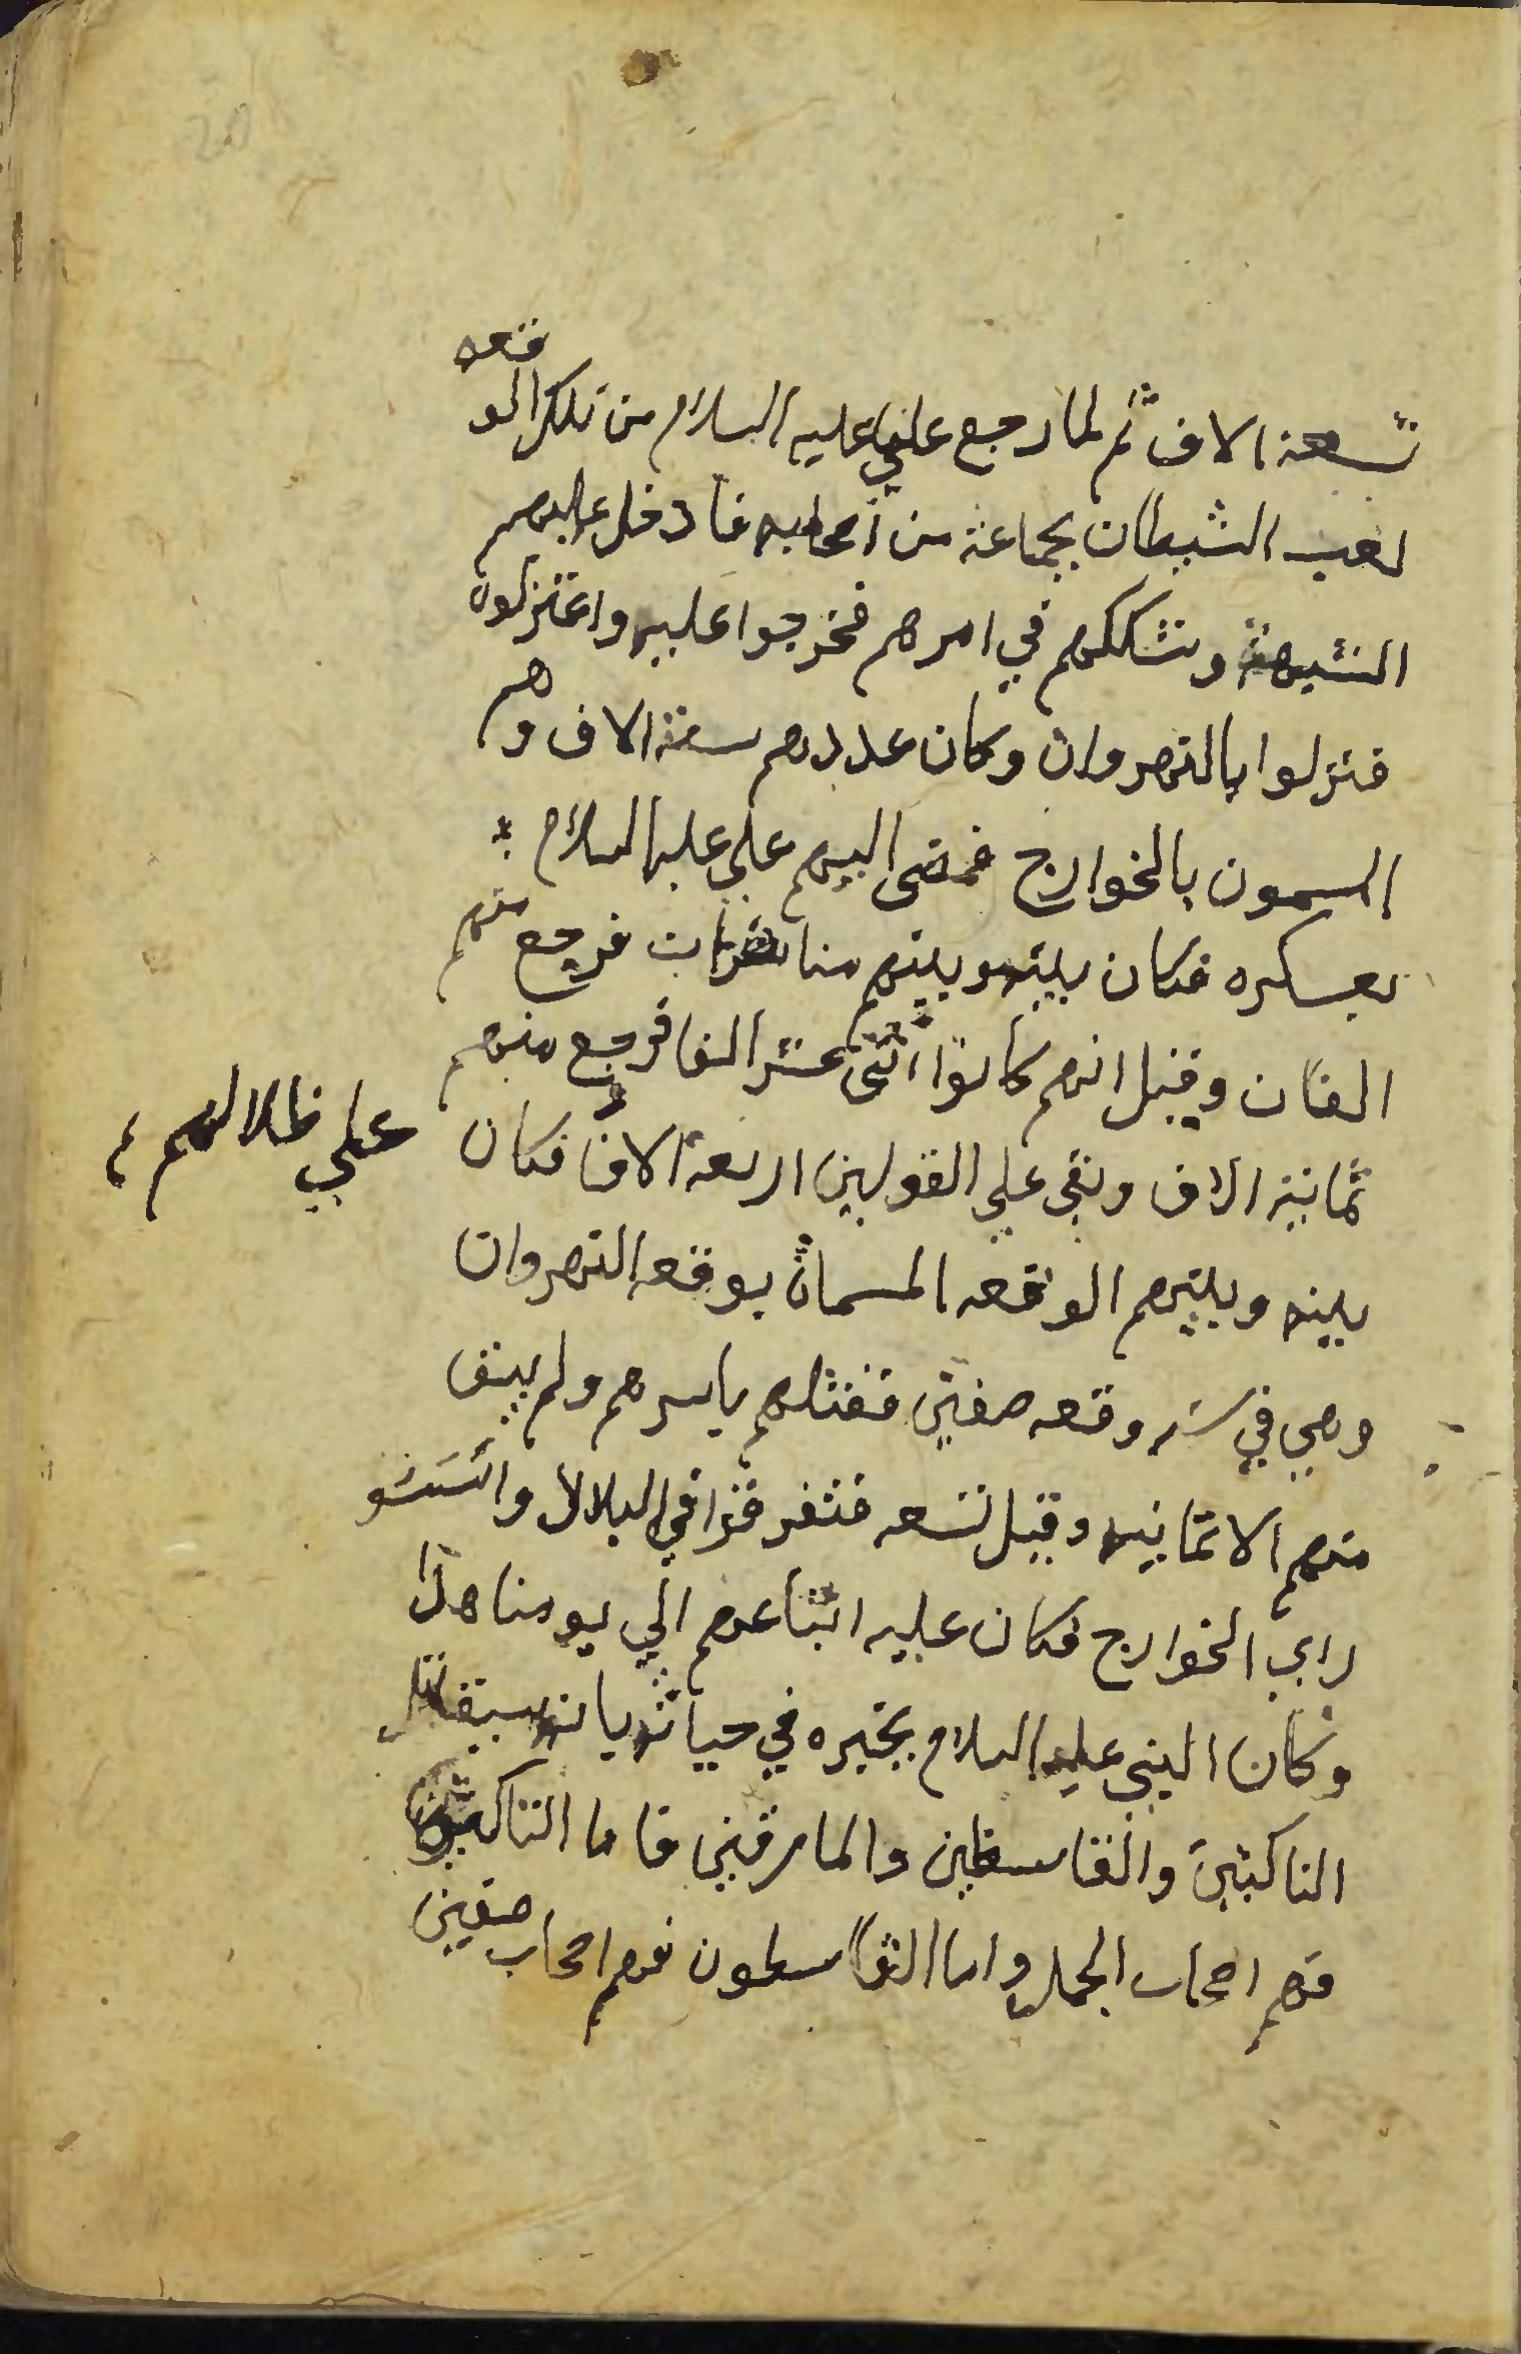 تسعة الاف ثم لما رجع علي عليه السلام من تلك الوقعه
لعب الشيطان بجماعة من أصحابه فادخل عليهم
الشبهة وتشككهم في امرهم فخرجوا عليه واعتزلوه
فنزلوا بالنهروان وكان عددهم ستة الاف وهم
المسمون بالخوارج فمضى اليهم علي عليه السلام
بعسكره فكان بينه وبينهم مناظرات فرجع منهم
الفان وقيل انهم كانوا اثنى عشر الفا فرجع منهم
ثمانية الاف وبقي علي القولين اربعة الاف فكان
علي ظلالهم
بينه وبينهم الوقعه المسماة بوقعه النهروان
وهي في سنه وقعه صفين فقتلهم باسرهم ولم يبق
منهم الا ثمانيه وقيل تسعه فتفرقوا في البلاد وانستشو
راي الخوارج فكان عليه اتباعهم الي يومنا هذا
وكان النبي عليه السلام يخبره في حياته بانه سيقاتل
الناكثين والقاسطين والمارقين فاما الناكثون
فهم اصحاب الجمل واما القاسطون فهم اصحاب صفين